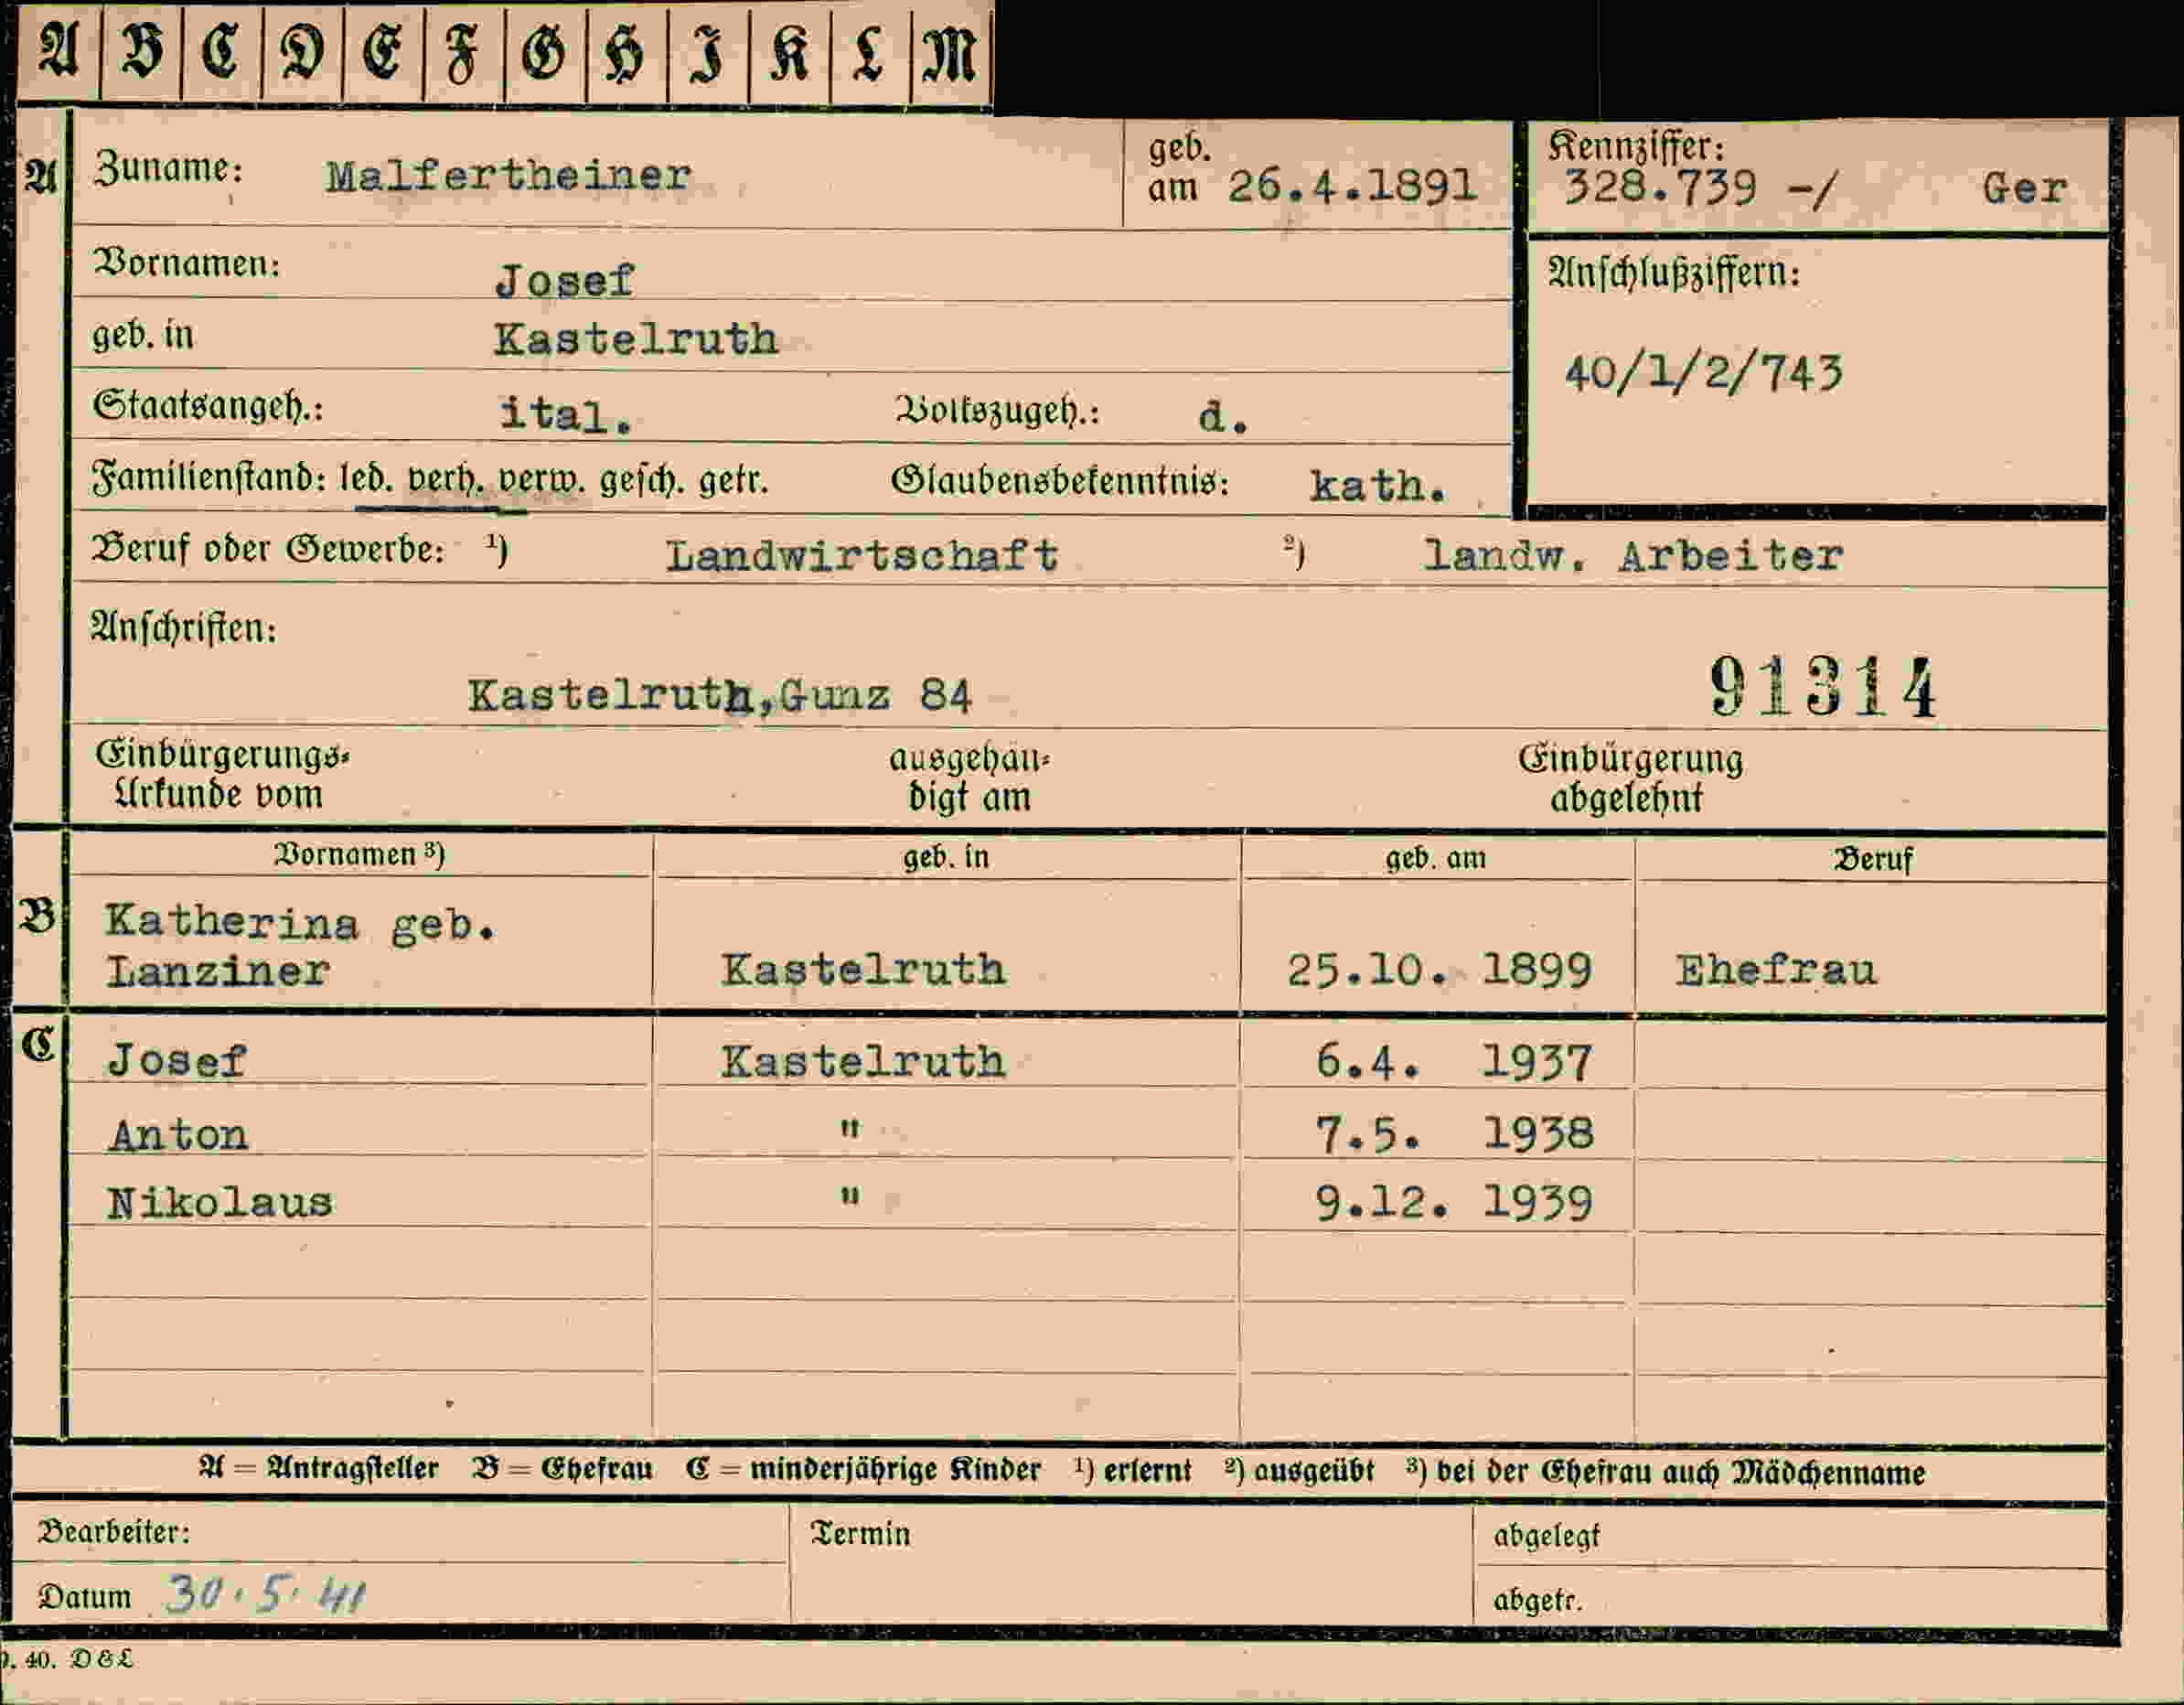 A B C D E F G H I K L M
A Zuname: Malfertheiner geb. am 26.4.1891 Kennziffer: 328.739 -/ Ger
Vornamen: Josef Anschlußziffern:
geb. in Kastelruth 40/1/2/743
Staatsangeh.: ital. Volkszugeh.: d.
Familienstand: led. verh. verw. gesch. getr. Glaubensbekenntnis: kath.
Beruf oder Gewerbe: ¹) Landwirtschaft ²) landw. Arbeiter
Anschriften:
Kastelruth,Gunz 84 91314
Einbürgerungs- ausgehän- Einbürgerung
Urkunde vom digt am abgelehnt
Vornamen ³) geb. in geb. am Beruf
B Katherina geb.
Lanziner Kastelruth 25.10. 1899 Ehefrau
C Josef Kastelruth 6.4. 1937
Anton " 7.5. 1938
Nikolaus " 9.12. 1939
A = Antragsteller B = Ehefrau C = minderjährige Kinder ¹) erlernt ²) ausgeübt ³) bei der Ehefrau auch Mädchenname
Bearbeiter: Termin abgelegt
Datum 30.5.41 abgetr.
40. D & L